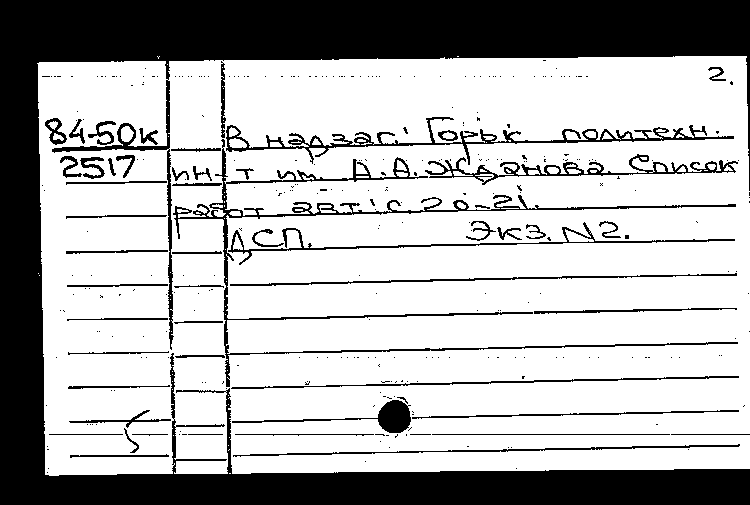 2.
84-50к
2517
В надзаг.: Горьк. политехн.
ин-т им. А.А. Жданова. Список
работ авт.: с. 20-21.
ДСП. Экз. N2.